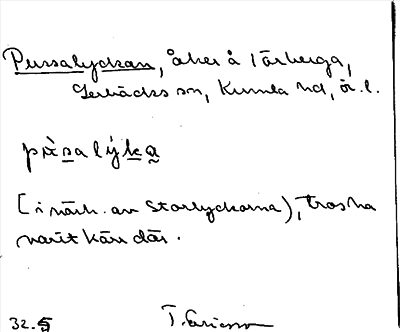 Pussalyckan, åker å Tårberga,
Gerbäcks sn, Kumla hd, ör. l.
pùsalýka
[i närh. av Storlyckorna), tros ha
varit kärr där.
32. T. Ericsson